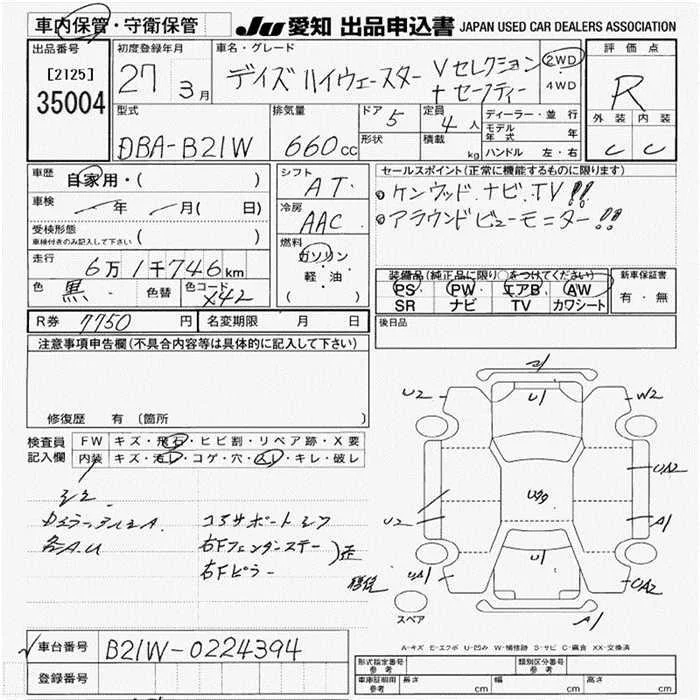 車内保管・守衛保管
JU 愛知 出品申込書 JAPAN USED CAR DEALERS ASSOCIATION
出品番号
[2125]
35004
初度登録年月
27 3月
車名・グレード
デイズ ハイウェースター Vセレクション
+セーフティー
2WD
4WD
評価点
R
外装 内装
C C
型式
DBA-B21W
排気量
660cc
ドア 5
形状
定員
4人
積載
kg
ディーラー・並行
モデル年式 年
ハンドル 左・右
車歴
自家用・( )
車検 年 月( 日)
受検形態
車検付きのみ記入して下さい ( )
走行 6万1千746km
色 黒 色替 色コード X42
シフト
AT
冷房
AAC
燃料
ガソリン
・
軽・油
( )
セールスポイント(正常に機能するものに限ります)
ケンウッド.ナビ.TV!!
アラウンドビューモニター!!
装備品(純正品に限り○をつけてください)
PS PW エアB AW
SR ナビ TV カワシート
新車保証書
有・無
R券 7750円
名変期限 月 日
後日品
注意事項申告欄(不具合内容等は具体的に記入して下さい)
修復歴 有 〔箇所
検査員
記入欄
FW キズ・飛石・ヒビ割・リペア跡・X要
内装 キズ・汚レ・コゲ・穴・スレ・キレ・破レ
シミ
各A.U
コアサポートシフ
右Fフェンダーステー
右Fピラー
歪
修復
21
U2
U1
W2
UA2
U99
U2
A1
UA1
U1
UA2
A1
スペア
A-キズ E-エクボ U-凹み W-補修跡 S-サビ C-腐食 XX-交換済
車台番号 B21W-0224394
登録番号
形式指定番号
参考
類別区分番号
参考
車庫証明用
参考
長さ cm
幅 cm
高さ cm